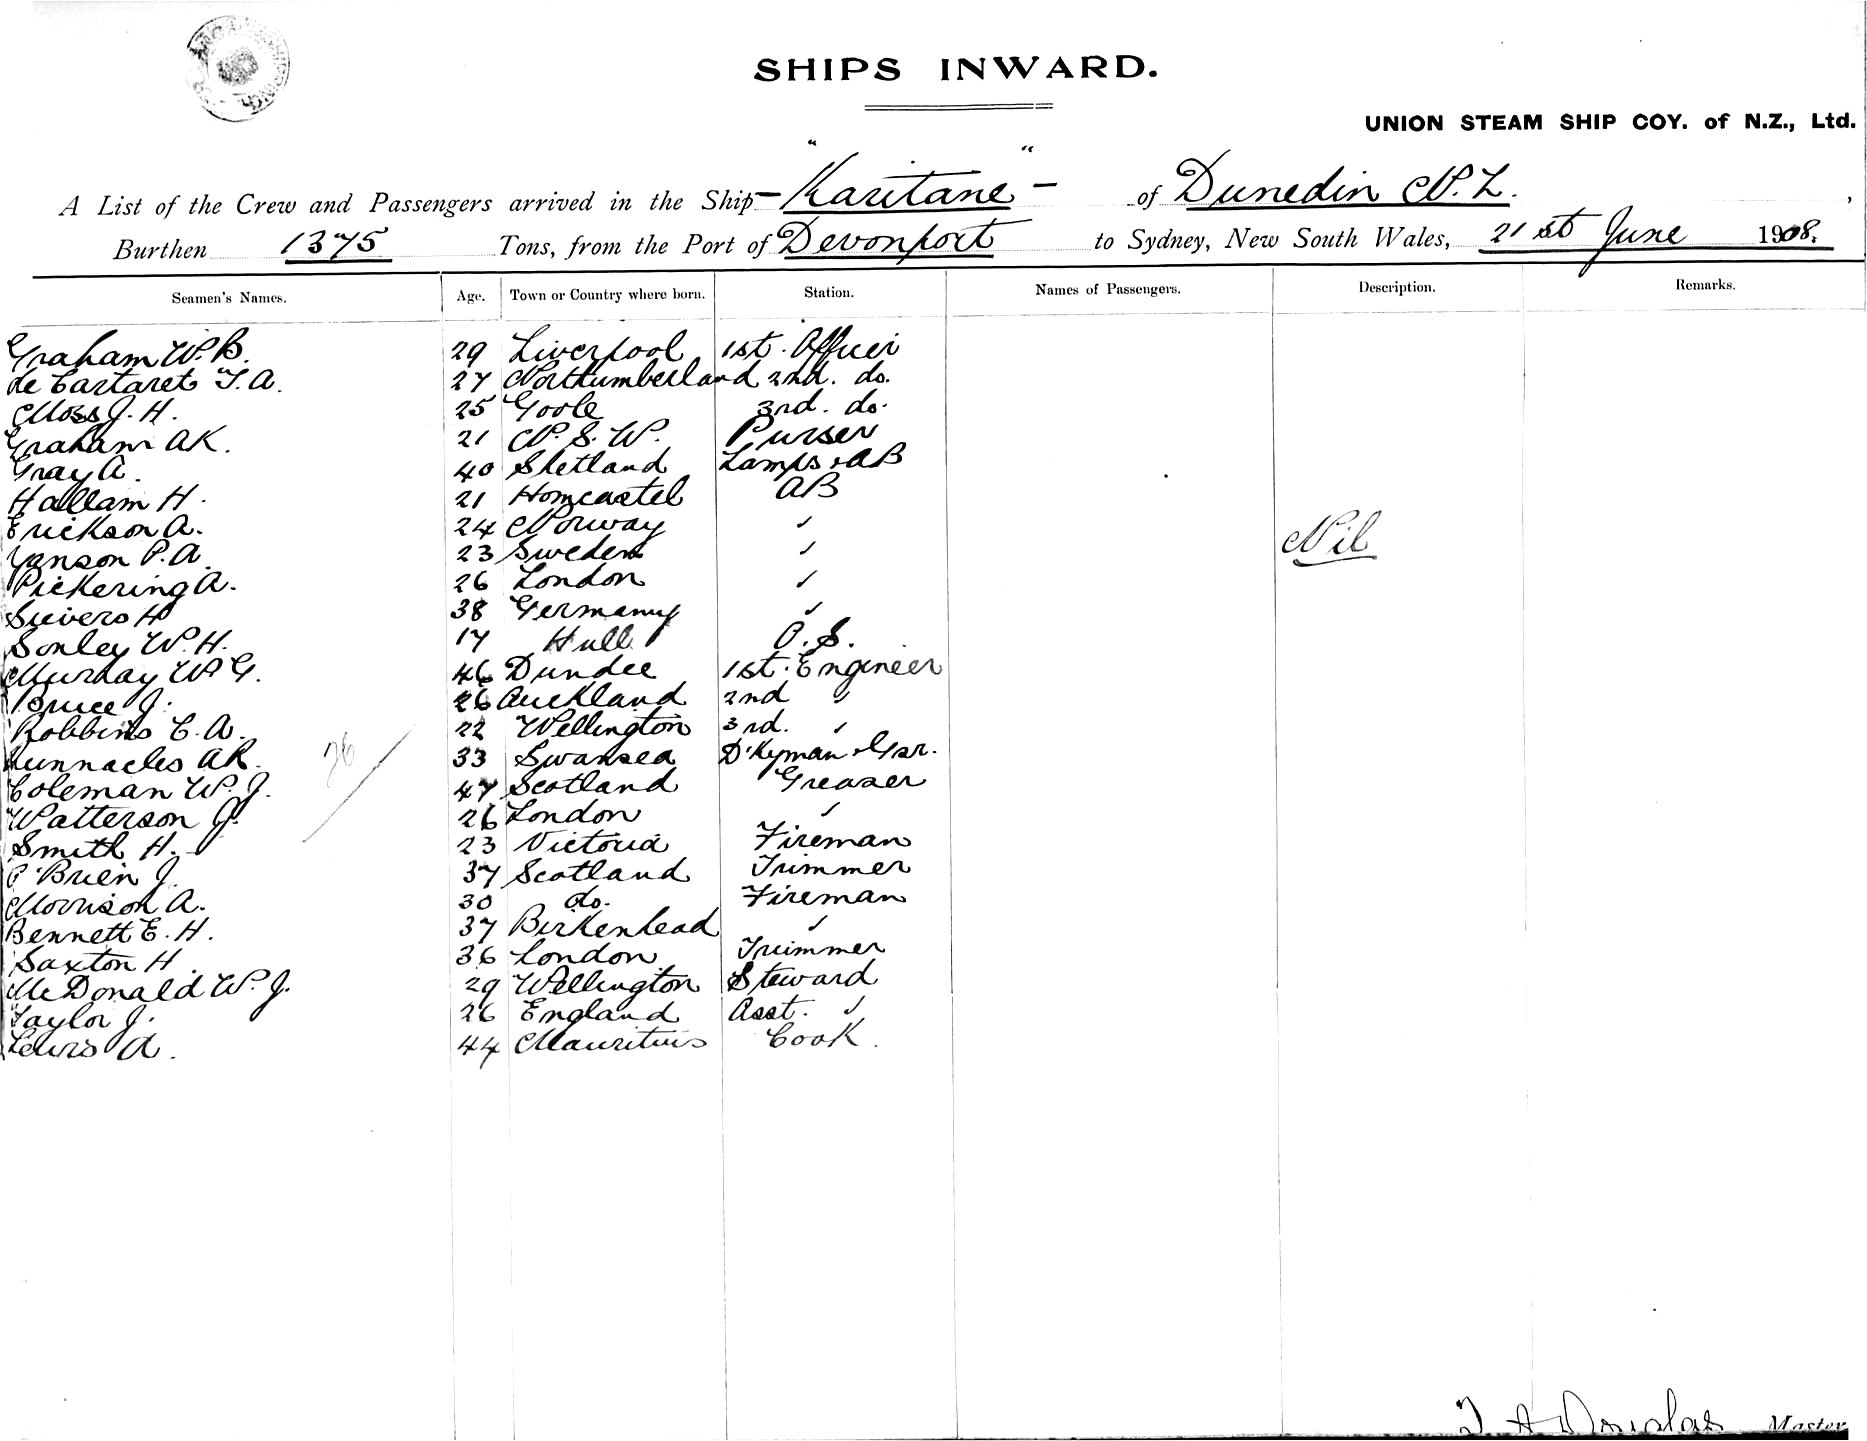 SHIPS INWARD.
UNION STEAM SHIP COY. of N.Z., Ltd.
A List of the Crew and Passengers arrived in the Ship - "Karitane" - of Dunedin N.Z.,
Burthen 1375 Tons, from the Port of Devonport to Sydney, New South Wales, 21st June 1908.
Seamen's Names. Age. Town or Country where born. Station. Names of Passengers. Description. Remarks.
Graham W. B. 29 Liverpool 1st. Officer
de Cartaret T. A. 27 Northumberland 2nd. do.
Moss J. H. 25 Goole 3rd. do.
Graham A K. 21 N. S. W. Purser
Gray A. 40 Shetland Lamps & AB
Hallam H. 21 Horncastel AB
Erickson A. 24 Norway "
Yanson P. A. 23 Sweden " Nil
Pickering A. 26 London "
Sievers H 38 Germany "
Sonley W. H. 17 Hull O. S.
Murray W G. 46 Dundee 1st. Engineer
Bruce J. 26 Auckland 2nd "
Robbins C. A. 22 Wellington 3rd. "
Runnacles A R. 33 Swansea D'Kyman & Gsr.
Coleman W. J. 47 Scotland Greaser
Watterson J. 26 London "
Smith H. 23 Victoria Fireman
O'Brien J. 37 Scotland Trimmer
Morrison A. 30 do. Fireman
Bennett E. H. 37 Birkenhead "
Saxton H 36 London Trimmer
McDonald W. J. 29 Wellington Steward
Taylor J. 26 England Asst. "
Lewis A. 44 Mauritius Cook.
Douglas Master